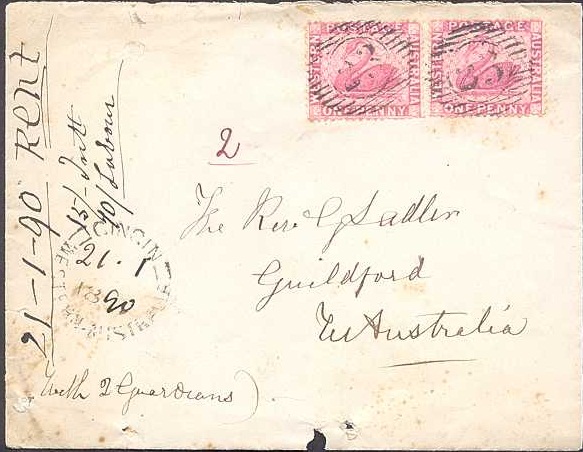 POSTAGE POSTAGE
WESTERN AUSTRALIA WESTERN AUSTRALIA
ONE PENNY ONE PENNY
2
The Rev: G Sadler
Guildford
W Australia
21-1-90 Rent
15/-
90/ Labour
GINGIN
21 . 1
90
WESTERN-AUSTRALIA
(with 2 Guardians)